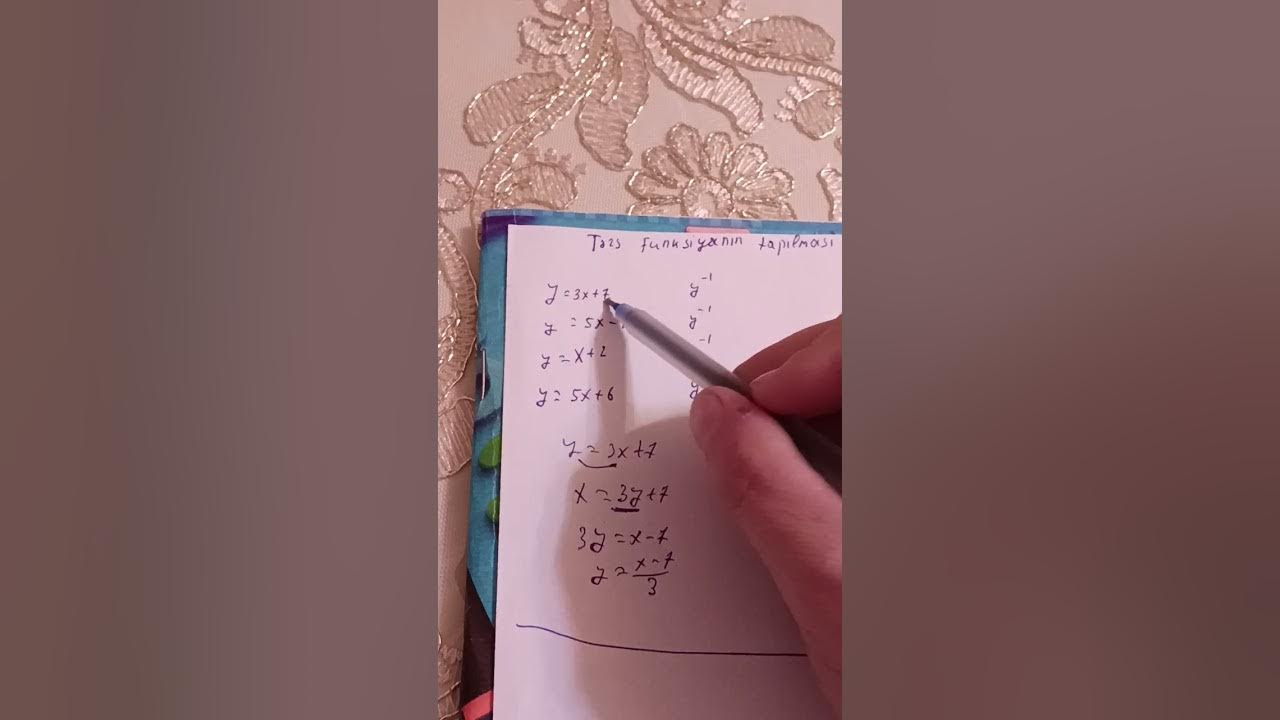 Tərs funksiyanın tapılması
y = 3x+7 y⁻¹
y = 5x- y⁻¹
y = x+2 ⁻¹
y = 5x+6 y
y = 3x+7
x = 3y+7
3y = x-7
y = x-7/3